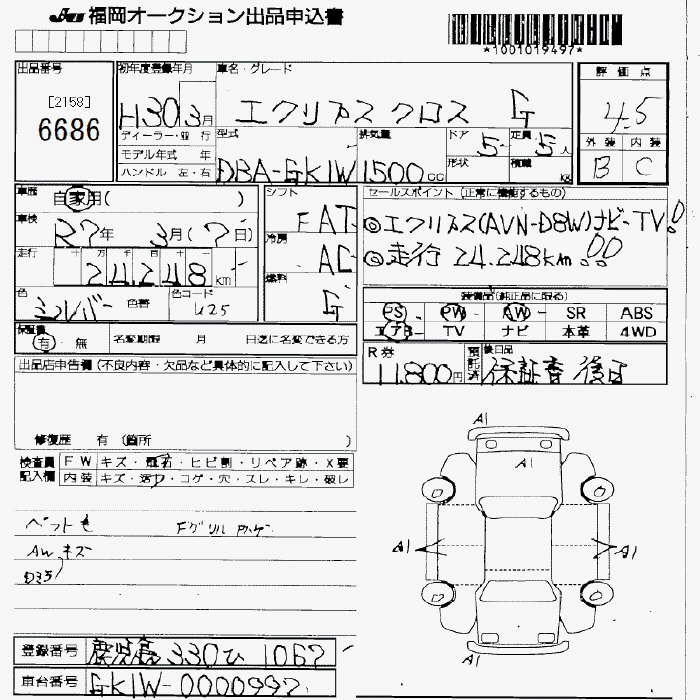 JU 福岡オークション出品申込書
*1001019497*
出品番号
[2158]
6686
初年度登録年月
H30 3月
車名・グレード
エクリプス クロス G
ディーラー・並 行
モデル年式 年
ハンドル 左・右
型式
DBA-GK1W
排気量
1500 CC
ドア
5
形状
定員
5人
積載
KG
評価点
4.5
外装 内装
B C
車歴
自家用( )
車検
R7年 3月(7日)
走行
十 万 千 百 十 一
24,248 km
色
シルバー
色替
色コード
U25
シフト
FAT
冷房
AC
燃料
G
セールスポイント (正常に機能するもの)
◎エクリプス(AVN-D8W)ナビ-TV!!
◎走行 24.248km!!
装備品(純正品に限る)
PS PW AW SR ABS
エアB TV ナビ 本革 4WD
保証書
有・無
名変期限 月 日迄に名変できる方
R券
11,800円
預託済
後日品
保証書 後日
出品店申告欄 (不良内容・欠品など具体的に記入して下さい)
修復歴 有 (箇所 )
検査員記入欄
FW キズ・飛石・ヒビ割・リペア跡・X要
内装 キズ・汚れ・コゲ・穴・スレ・キレ・破レ
AWキズ
A1
A1
A1
A1
A1
登録番号
鹿児島 330 ひ 1067
車台番号
GK1W-0000997